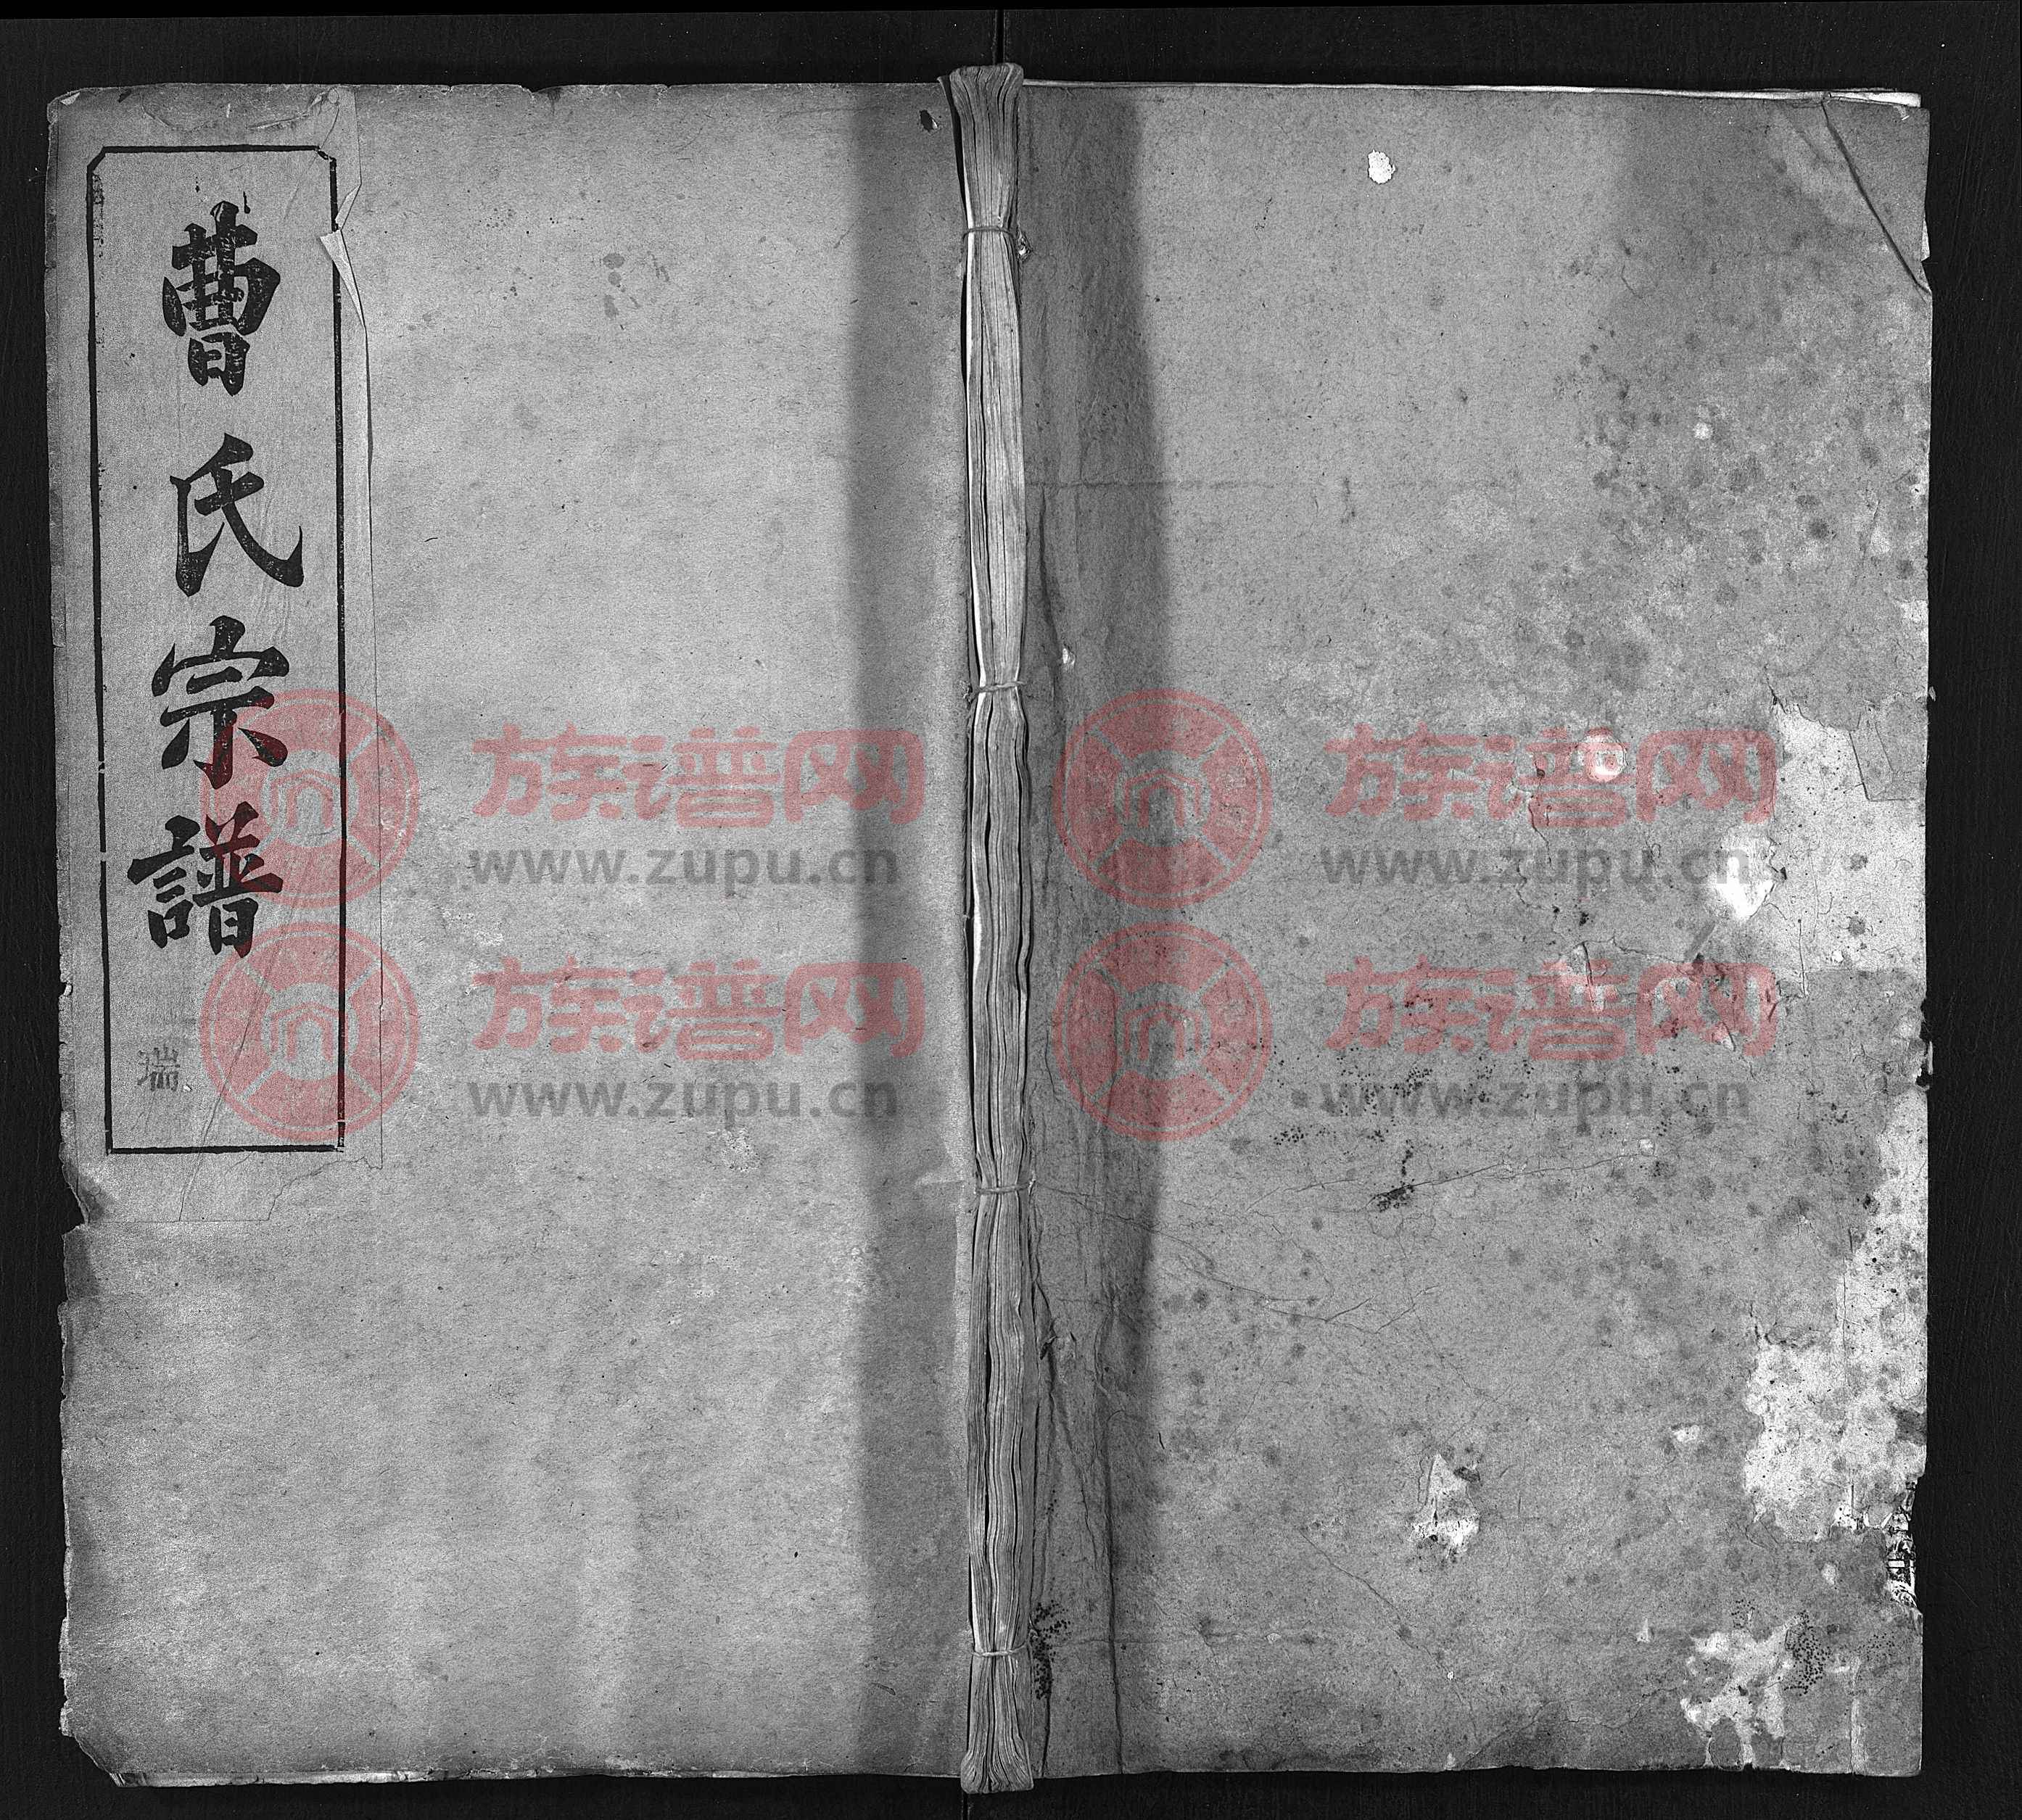 曹氏宗譜
瑞
族谱网 族谱网
www.zupu.cn www.zupu.cn
族谱网 族谱网
www.zupu.cn www.zupu.cn